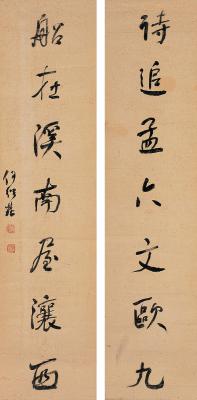 詩追孟六文歐九
船在溪南屋瀼西
何紹基